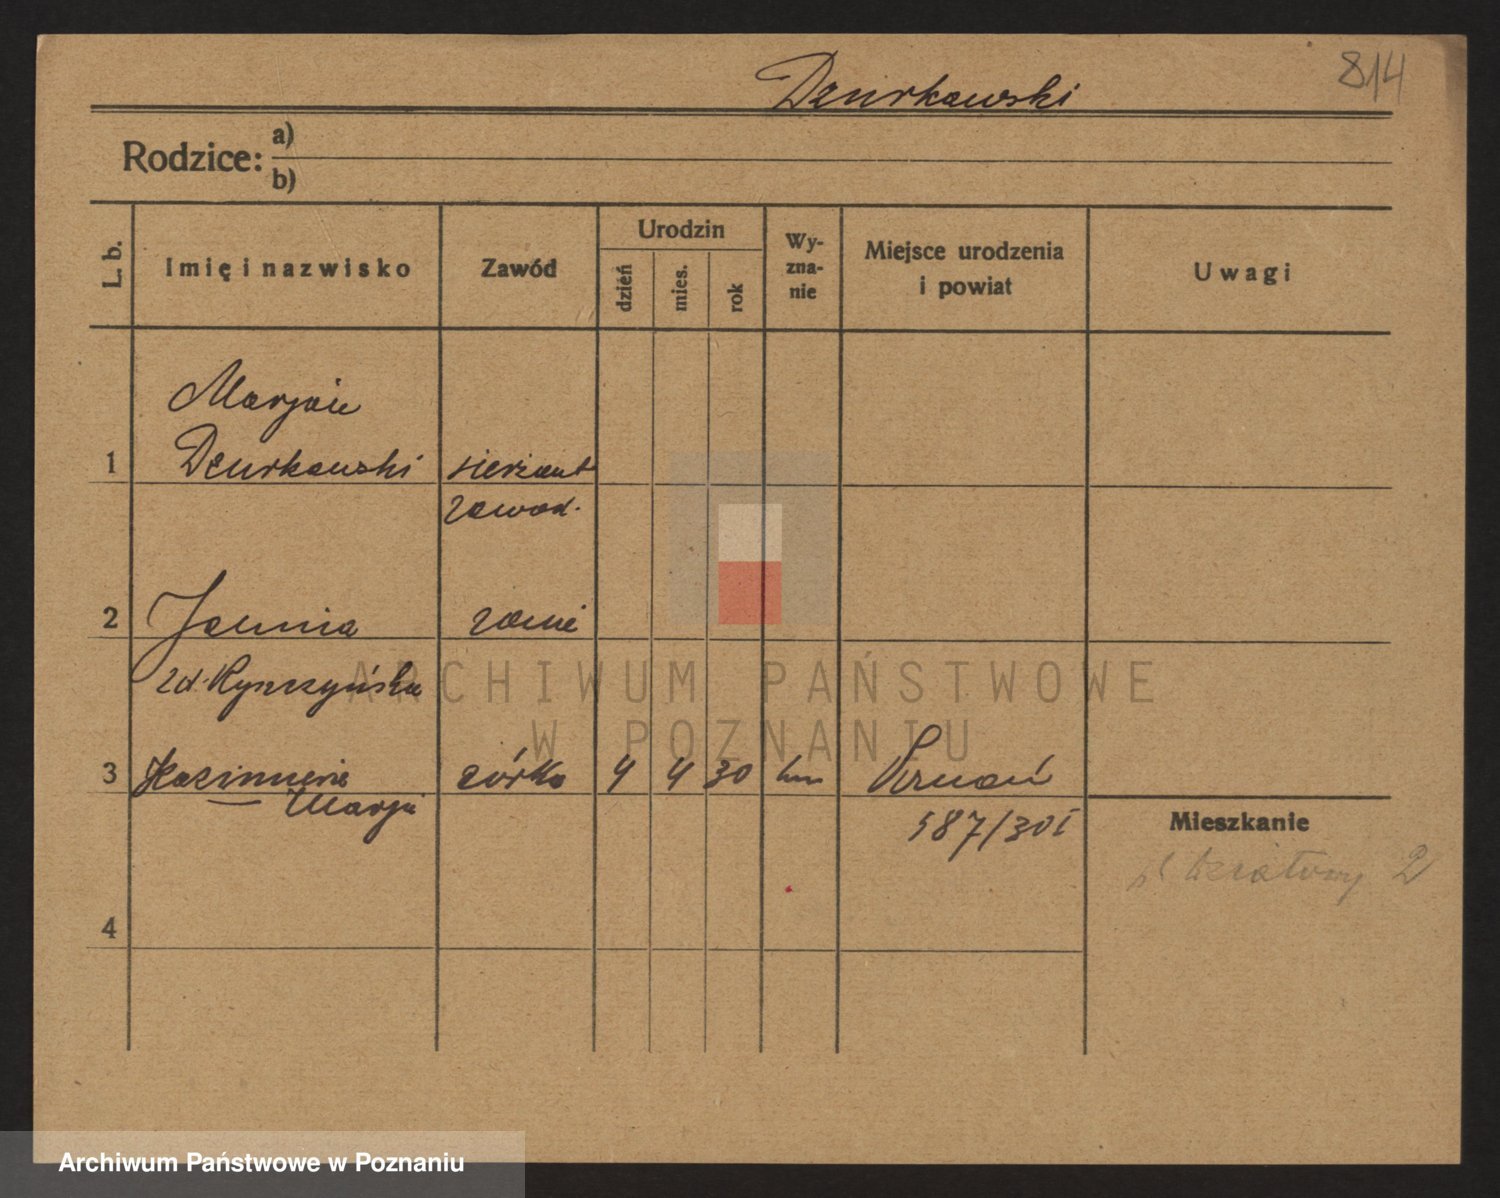 814
Dzurkowski
Rodzice: a)
b)
L. b.
Imię i nazwisko
Zawód
Urodzin
dzień
mies.
rok
Wy-
zna-
nie
Miejsce urodzenia
i powiat
Uwagi
Marjan
1 Dzurkowski sierżant
zawod.
2 Janina
zd.
3 Kazimiera córka 4 4 30 Poznań
Marja
587/30 I
Mieszkanie
Działowy 2
4
ARCHIWUM PAŃSTWOWE
W POZNANIU
Archiwum Państwowe w Poznaniu